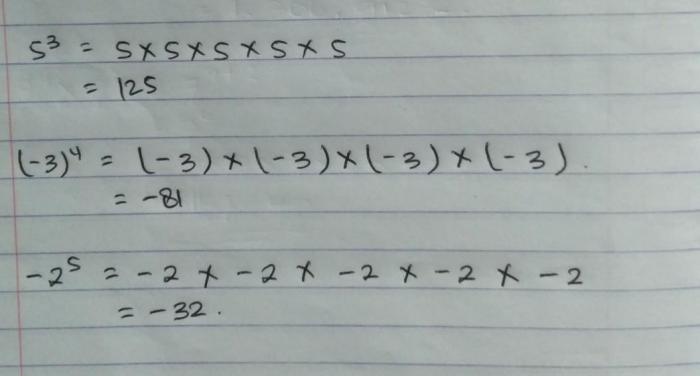 5³ = 5 × 5 × 5 × 5 × 5
= 125
(-3)⁴ = (-3) × (-3) × (-3) × (-3).
= -81
-2⁵ = -2 × -2 × -2 × -2 × -2
= -32.